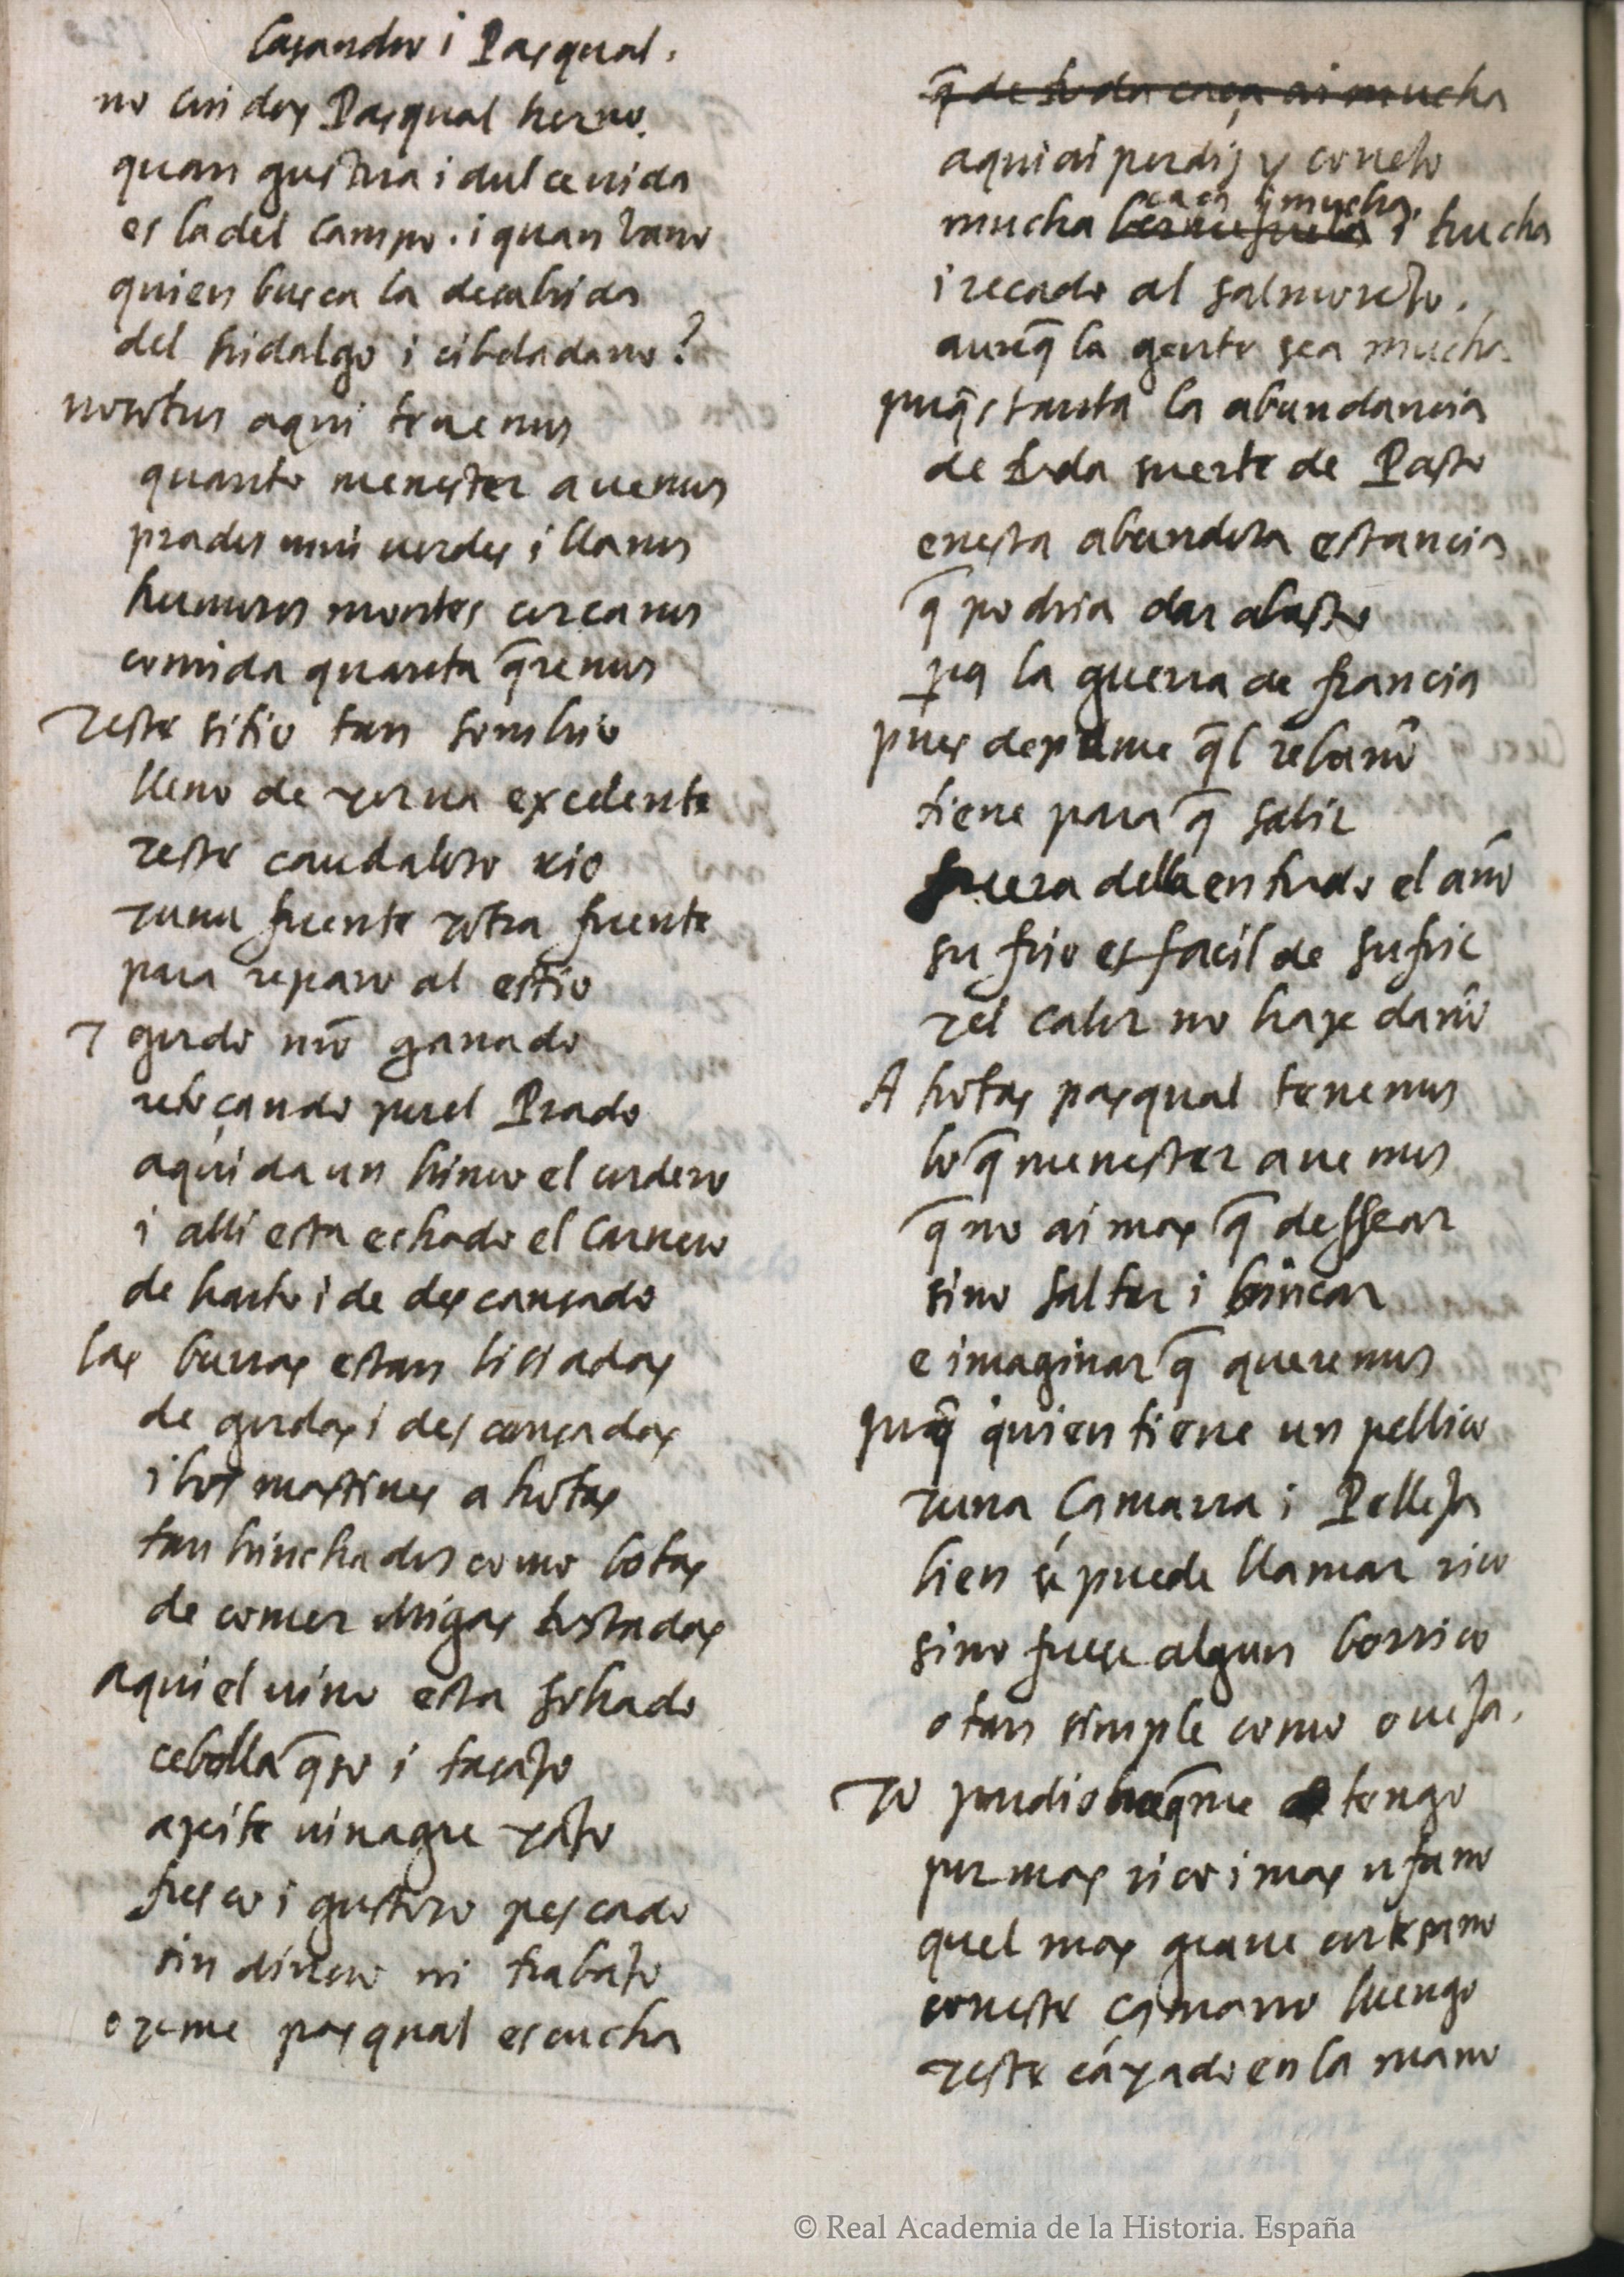 Casandro i Pasqual.
no cuides Pasqual hermo.
quan gustosa i dulce uida
es la del campo. i quan uano
quien busca la desabrida
del hidalgo i cibdadano?
nosotros aqui traemos
quanto menester auemos
prados mui uerdes i llanos
humorosos montes cercanos
comida quanta q̃remos
Y este sitio tan sombrio
lleno de yerua excelente
y este caudaloso rio
y una fuente y otra fuente
para reparo al estio
Y gordo nr̃o ganado
retoçando por el Prado
aqui da un brinco el cordero
i alli esta echado el Carnero
de harto i de descansado
las burras estan lisiadas
de gordas i descansadas
i los mastines a hotas
tan hinchados como botas
de comer Migas tostadas
aqui el uino esta sobrado
cebolla q̃so i tasajo
azeite uinagre y ajo
fresco i gustoso pescado
sin dinero ni trabajo
oyeme pasqual escucha
q̃ de toda caça ai mucha
aqui ai perdiz y conejo
caça i mucha
mucha i trucha
i recado al salmorejo.
aunq̃ la gente sea mucha
porq̃s tanta la abundancia
de toda suerte de Pasto
enesta abundosa estancia
q̃ podria dar abasto
pa la guerra de francia
pues depome q̃l rebaño
tiene para q̃ salir
fuera della en todo el año
su frio es facil de sufrir
y el calor no haze daño
A hotas pasqual tenemos
lo q̃ menester auemos
q̃ no ai mas q̃ dessear
sino saltar i brincar
e imaginar q̃ queremos
porq̃ quien tiene un pellico
y una Çamarra i Pelleja
bien se puede llamar rico
sino fuese algun borrico
o tan simple como oueja.
Yo q̃ me tengo
por mas rico i mas ufano
quel mas graue cortesano
coneste çamarro luengo
y este cayado en la mano
© Real Academia de la Historia. España